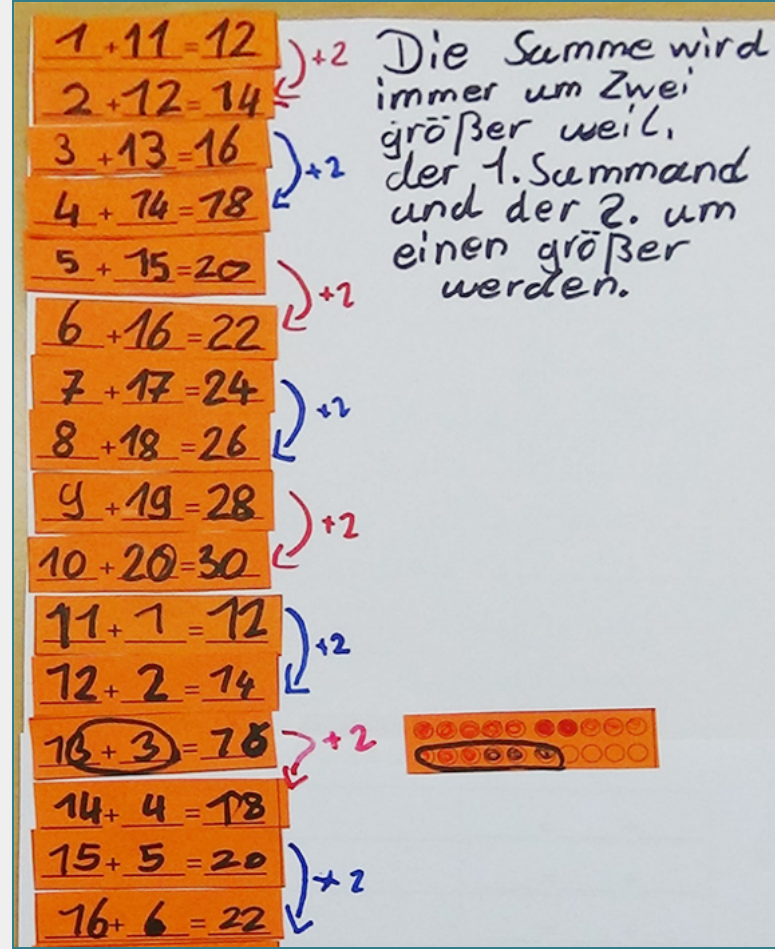 1 + 11 = 12
+2
2 + 12 = 14
3 + 13 = 16
+2
4 + 14 = 18
5 + 15 = 20
+2
6 + 16 = 22
7 + 17 = 24
+2
8 + 18 = 26
9 + 19 = 28
+2
10 + 20 = 30
11 + 1 = 12
+2
12 + 2 = 14
13 + 3 = 16
+2
14 + 4 = 18
15 + 5 = 20
+2
16 + 6 = 22
Die Summe wird
immer um Zwei
größer weil,
der 1. Summand
und der 2. um
einen größer
werden.